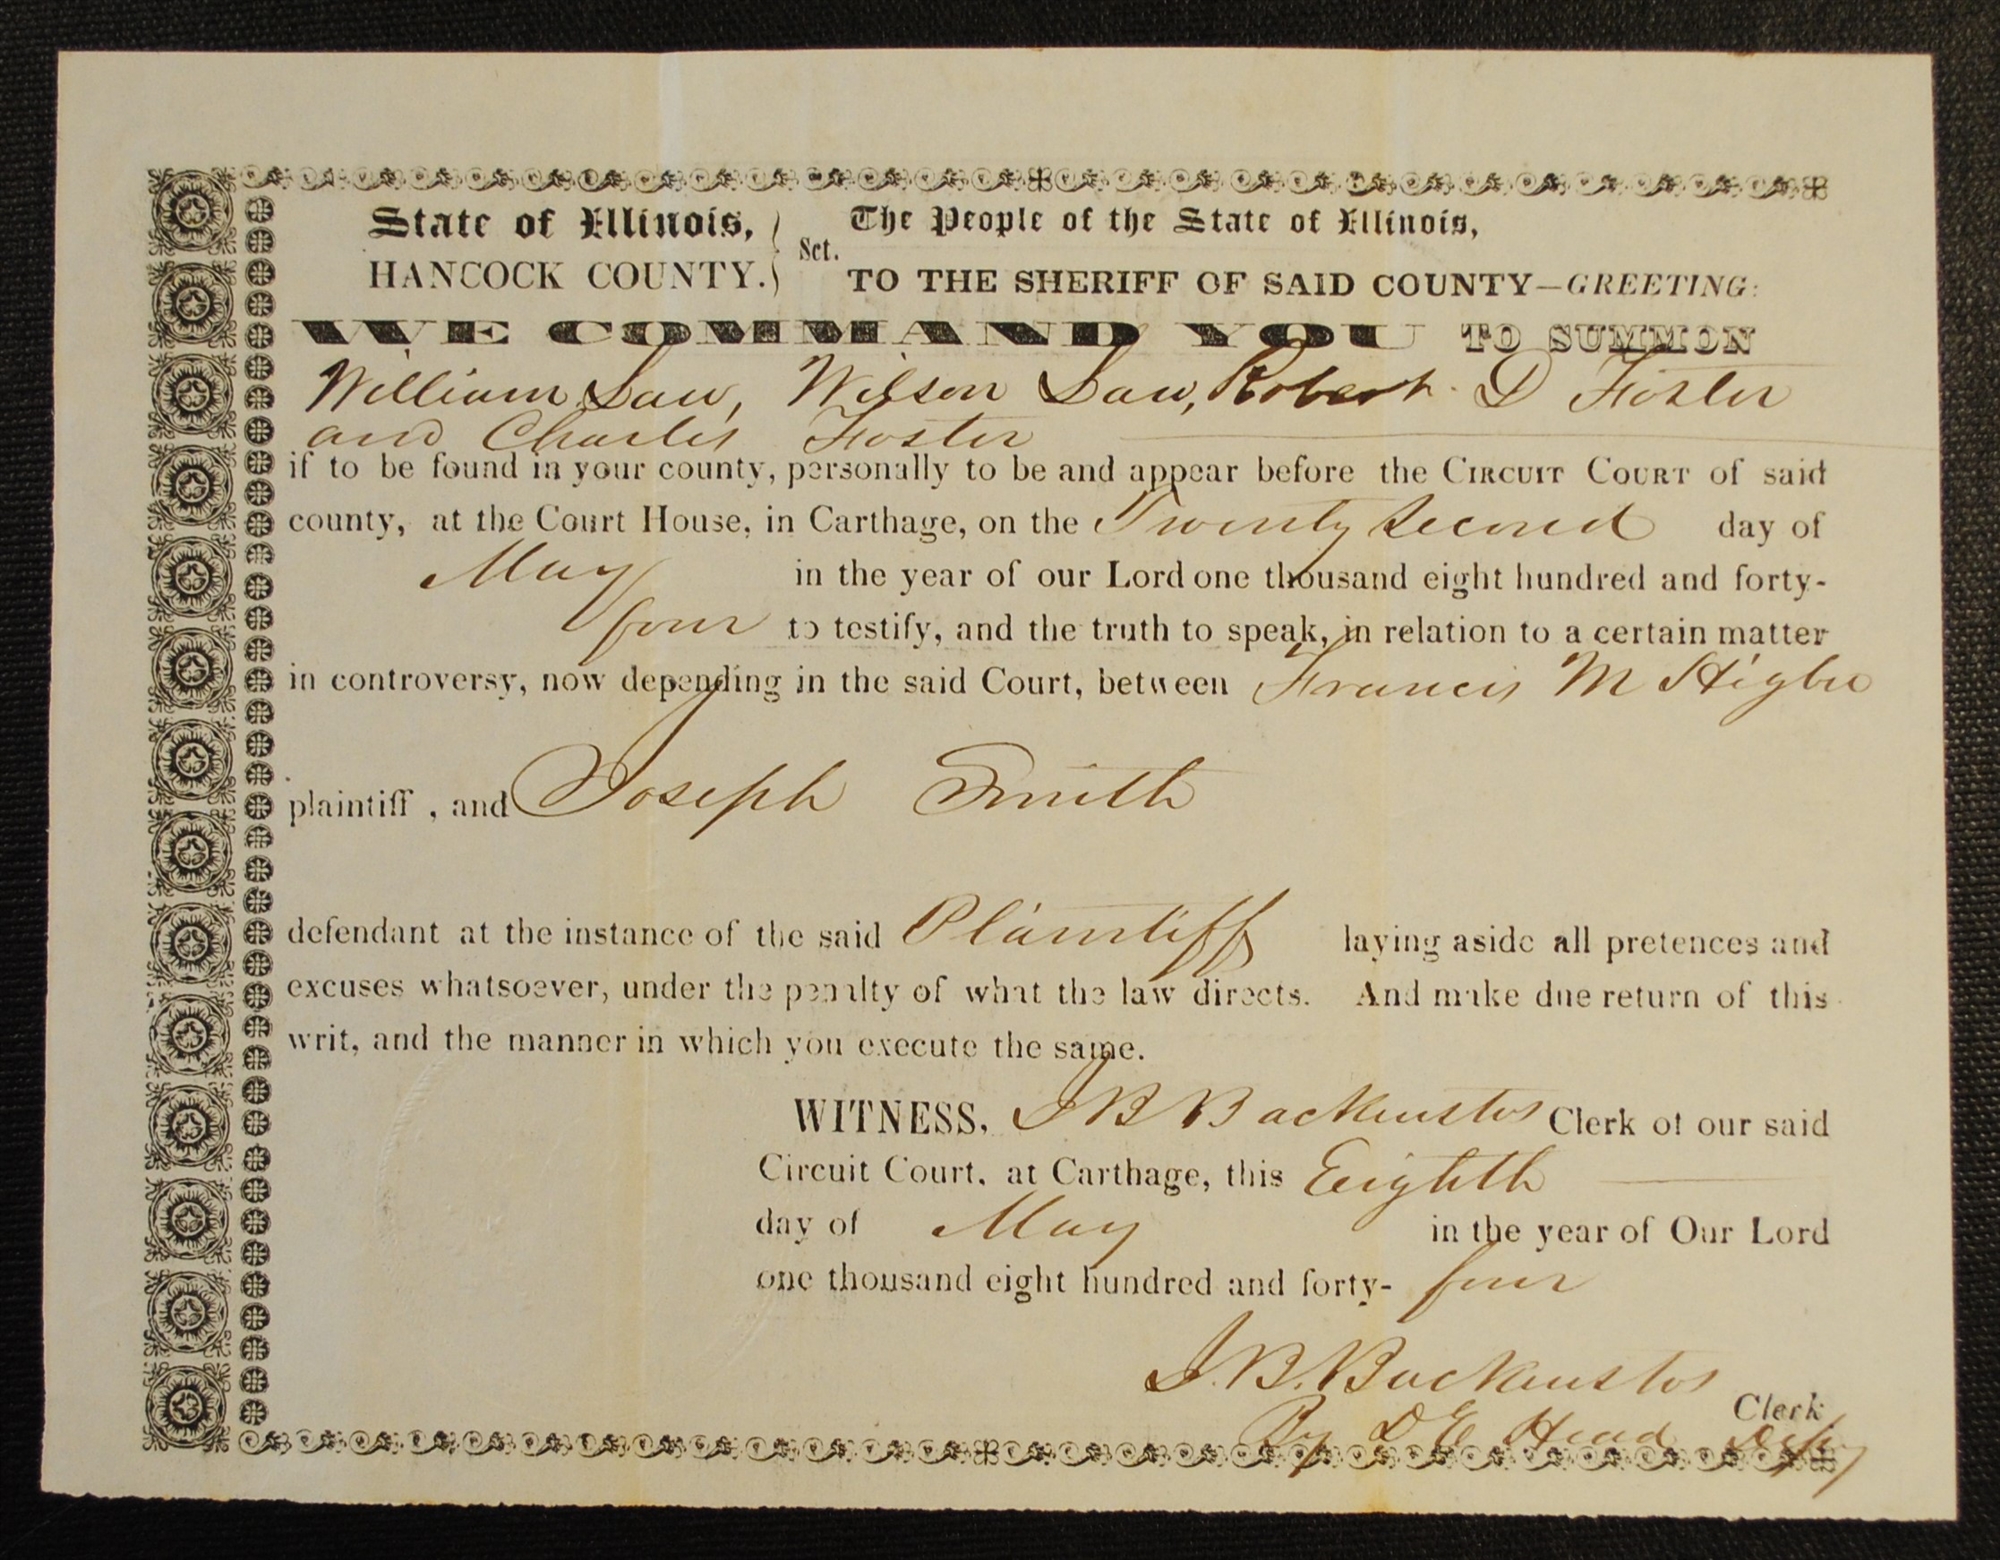 State of Illinois,
HANCOCK COUNTY.
Sct.
The People of the State of Illinois,
TO THE SHERIFF OF SAID COUNTY—GREETING:
WE COMMAND YOU TO SUMMON
William Law, Wilson Law, Robert D Foster
and Charles Foster
if to be found in your county, personally to be and appear before the CIRCUIT COURT of said
county, at the Court House, in Carthage, on the Twenty Second day of
May in the year of our Lord one thousand eight hundred and forty-
four to testify, and the truth to speak, in relation to a certain matter
in controversy, now depending in the said Court, between Francis M Higbee
plaintiff, and Joseph Smith
defendant at the instance of the said Plaintiff laying aside all pretences and
excuses whatsoever, under the penalty of what the law directs. And make due return of this
writ, and the manner in which you execute the same.
WITNESS, J B Backenstos Clerk of our said
Circuit Court, at Carthage, this Eighth
day of May in the year of Our Lord
one thousand eight hundred and forty- four
J. B. Backenstos
Clerk
By D E Head Depy